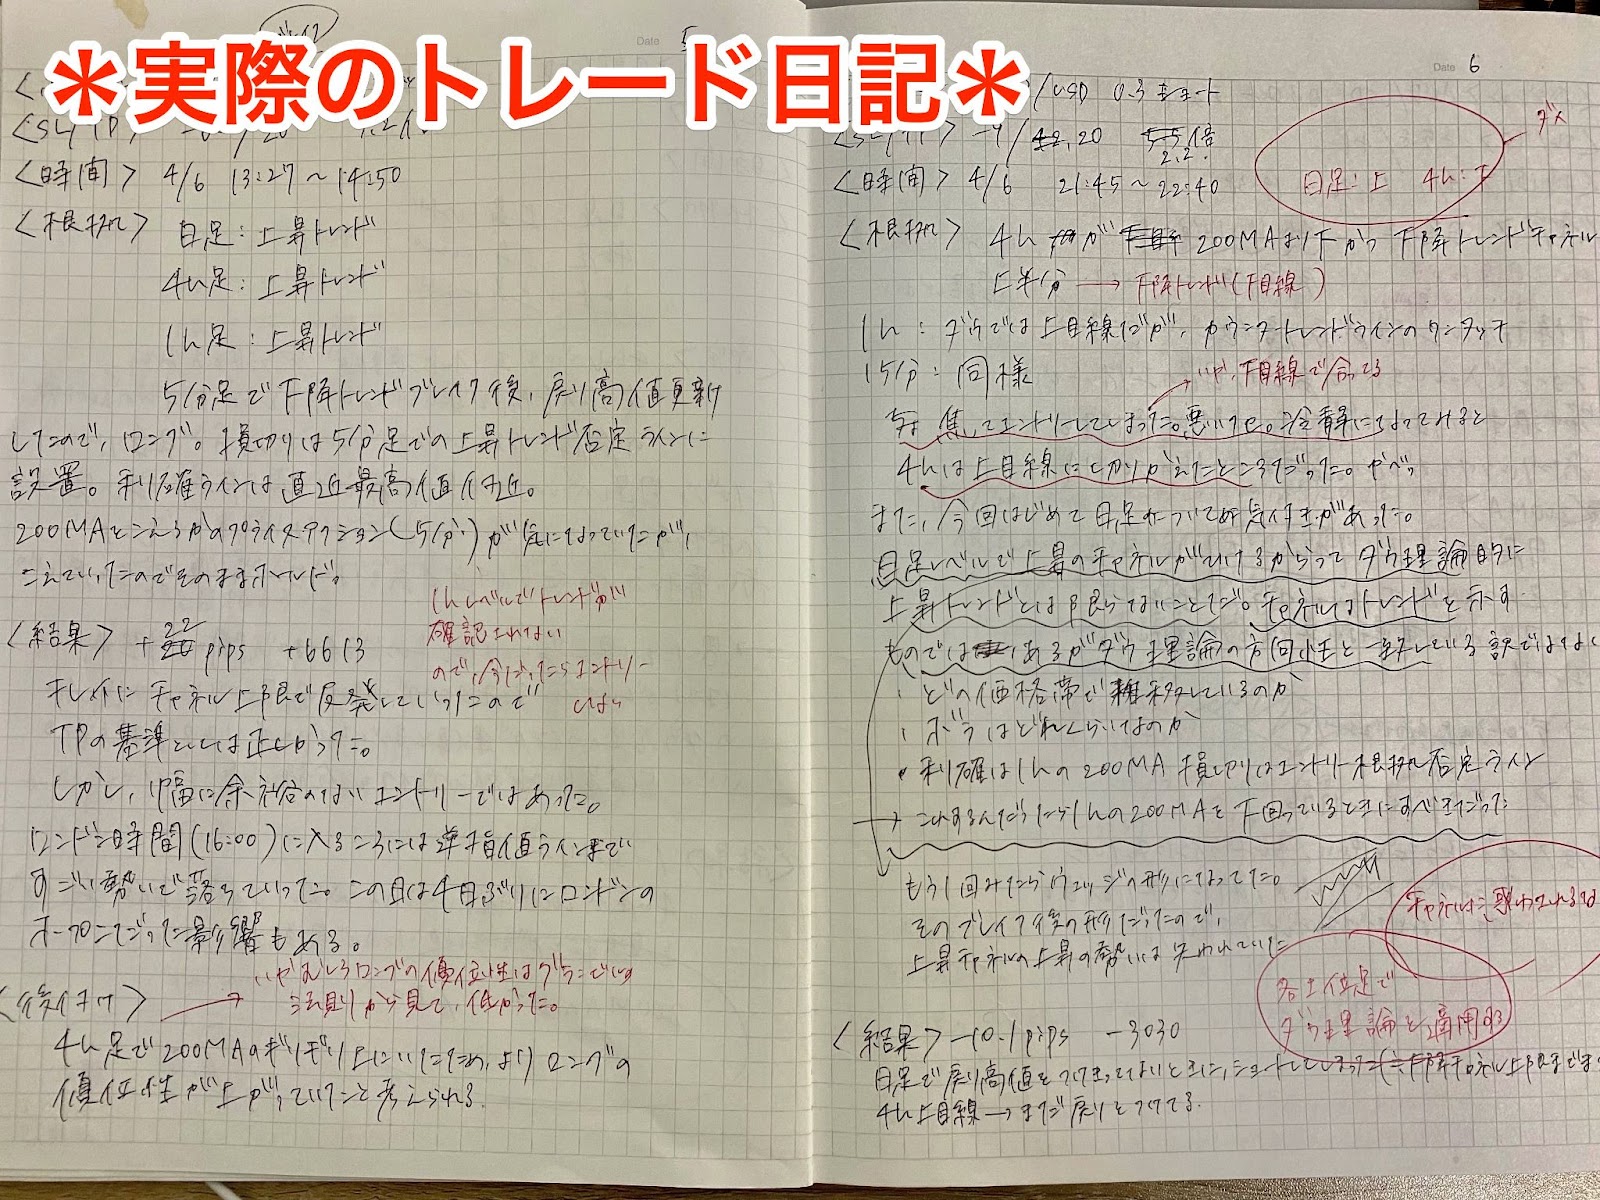 ＊実際のトレード日記＊
Date 5
<時間> 4/6 13:27〜14:50
<根拠> 日足：上昇トレンド
4h足：上昇トレンド
1h足：上昇トレンド
5分足で下降トレンドブレイク後、戻り高値更新
したので、ロング。損切りは5分足での上昇トレンド否定ラインに
設置。利確ラインは直近最高値付近。
200MAをこえるかのプライスアクション(5分)が気になっていたが、
こえていったのでそのままホールド。
1hレベルでトレンドが
確認されない
ので、今だったらエントリー
しない
<結果> +22pips +6613
キレイにチャネル上限で反発していったので
TPの基準としては正しかった。
しかし、幅に余裕のないエントリーではあった。
ロンドン時間(16:00)に入るころには逆指値ラインまで
すごい勢いで落ちていった。この日は4日ぶりにロンドンの
オープンだった影響もある。
いやむしろロングの優位性はグランビルの
法則から見て、低かった。
<後付け>
4h足で200MAのギリギリ上にいたため、よりロングの
優位性が上がっていたと考えられる。
Date 6
/USD 0.3 ショート
-9/ 20 2.2倍
<時間> 4/6 21:45〜22:40
日足：上 4h：下
ダメ
<根拠> 4hが200MAより下かつ下降トレンドチャネル
上半分→下降トレンド(下目線)
1h：ダウでは上目線だが、カウンタートレンドラインのワンタッチ
15分：同様
いや、下目線で合ってる
焦ってエントリーしてしまった。悪いクセ。冷静になってみると
4hは上目線に切りかえたところだった。
また、今回はじめて日足について気付きがあった。
日足レベルで上昇のチャネルができてるからってダウ理論的に
上昇トレンドとは限らないことだ。チャネルはトレンドを示す
ものではあるがダウ理論の方向性と一致している訳ではない
・どの価格帯で推移しているのか
・ボラはどれくらいなのか
・利確は1hの200MA 損切りはエントリー根拠否定ライン
→これするんだったら1hの200MAを下回っているときにすべきだった
もう1回みたらウェッジの形になってた。
そのブレイク後の形だったので、
上昇チャネルの上昇の勢いは失われていた
チャネルに惑わされるな
各上位足で
ダウ理論を適用
<結果> -10.1pips -3030
日足で戻り高値をつけきってないときに、ショートしてしまった
4h上目線→まだ戻りをつけてる。